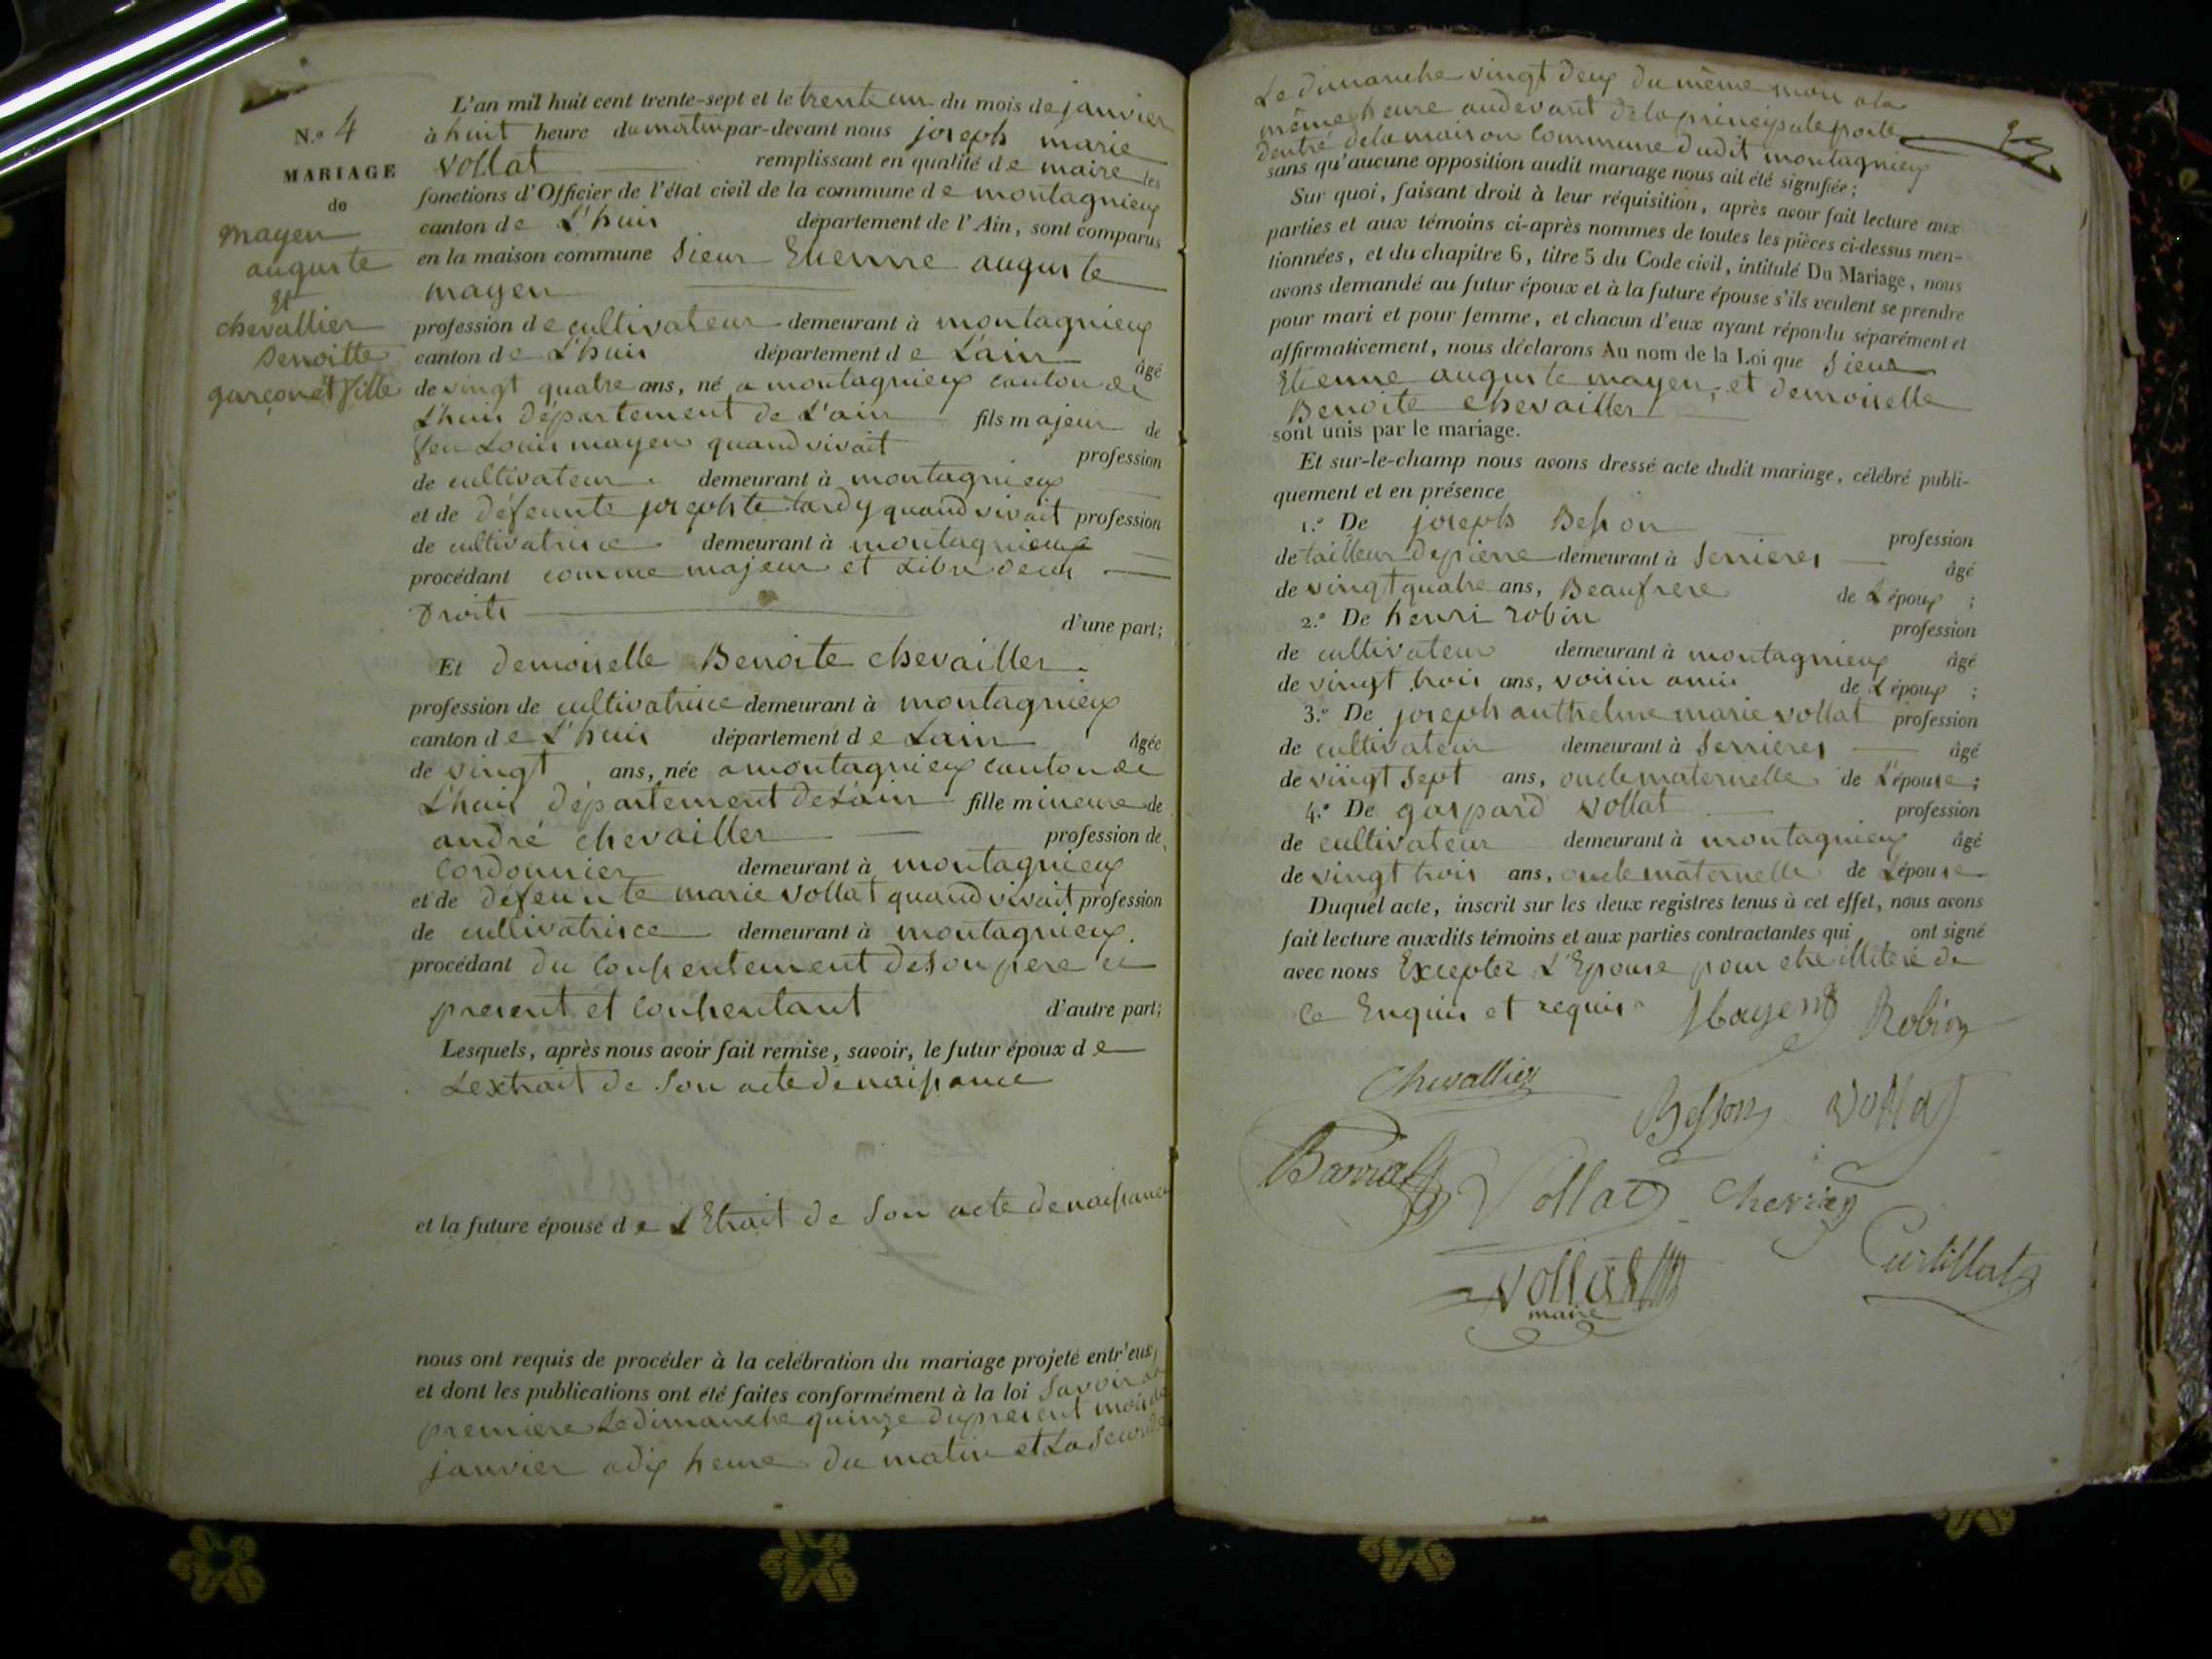 N.o 4
MARIAGE
de
mayen
auguste
Et
chevallier
Benoitte
garçon et fille
L'an mil huit cent trente-sept et le trente un du mois de janvier
à huit heure du matin par-devant nous joseph marie
vollat remplissant en qualité de maire les
fonctions d'Officier de l'état civil de la commune de montagnieux
canton de L'huis département de l'Ain, sont comparus
en la maison commune Sieur Etienne auguste
mayen
profession de cultivateur demeurant à montagnieux
canton de L'huis département de L'ain âgé
de vingt quatre ans, né a montagnieux canton de
L'huis département de L'ain fils majeur de
feu Louis mayen quand vivait profession
de cultivateur demeurant à montagnieux
et de défeunte josephte tardy quand vivait profession
de cultivatrice demeurant à montagnieux
procédant comme majeur et Libre de ces
Droits d'une part;
Et demoiselle Benoite chevailler
profession de cultivatrice demeurant à montagnieux
canton de L'huis département de Lain âgée
de vingt ans, née a montagnieux canton de
L'huis département de L'ain fille mineure de
andré chevailler profession de
Cordonnier demeurant à montagnieux
et de défeunte marie vollat quand vivait profession
de cultivatrice demeurant à montagnieux.
procédant du Consentement de son pere ci
present et Consentant d'autre part;
Lesquels, après nous avoir fait remise, savoir, le futur époux de
Lextrait de Son acte de naissance
et la future épouse de L'Etrait de Son acte de naissance
nous ont requis de procéder à la celébration du mariage projeté entr'eux,
et dont les publications ont été faites conformément à la loi Savoir la
premiere Le dimanche quinze du present mois de
janvier a dix heure du matin et La Seconde
Le dimanche vingt deux du même mois a la
même heure audevant de la principale porte
dentré de la maison Commune dudit montagnieux
sans qu'aucune opposition audit mariage nous ait été signifiée;
Sur quoi, faisant droit à leur réquisition, après avoir fait lecture aux
parties et aux témoins ci-après nommes de toutes les pièces ci-dessus men-
tionnées, et du chapitre 6, titre 5 du Code civil, intitulé Du Mariage, nous
avons demandé au futur époux et à la future épouse s'ils veulent se prendre
pour mari et pour femme, et chacun d'eux ayant répondu séparément et
affirmativement, nous déclarons Au nom de la Loi que Sieur
Etienne auguste mayen, et demoiselle
Benoite chevailler
sont unis par le mariage.
Et sur-le-champ nous avons dressé acte dudit mariage, célébré publi-
quement et en présence
1.o De joseph Besson profession
de tailleur de pierre demeurant à Serrieres âgé
de vingt quatre ans, Beaufrere de L'époux ;
2.o De henri robin profession
de cultivateur demeurant à montagnieux âgé
de vingt trois ans, voisin amis de L'époux ;
3.o De joseph anthelme marie vollat profession
de cultivateur demeurant à Serrieres âgé
de vingt sept ans, oncle maternelle de L'épouse;
4.o De gaspard vollat profession
de cultivateur demeurant à montagnieux âgé
de vingt trois ans, oncle maternelle de Lépouse
Duquel acte, inscrit sur les deux registres tenus à cet effet, nous avons
fait lecture auxdits témoins et aux parties contractantes qui ont signé
avec nous Excepter L'Epouse pour etre illiteré de
ce Enquis et requis Mayen Robin
Chevallier
Besson vollat
Barral Vollat Cherrier
Curtillat
vollat
maire